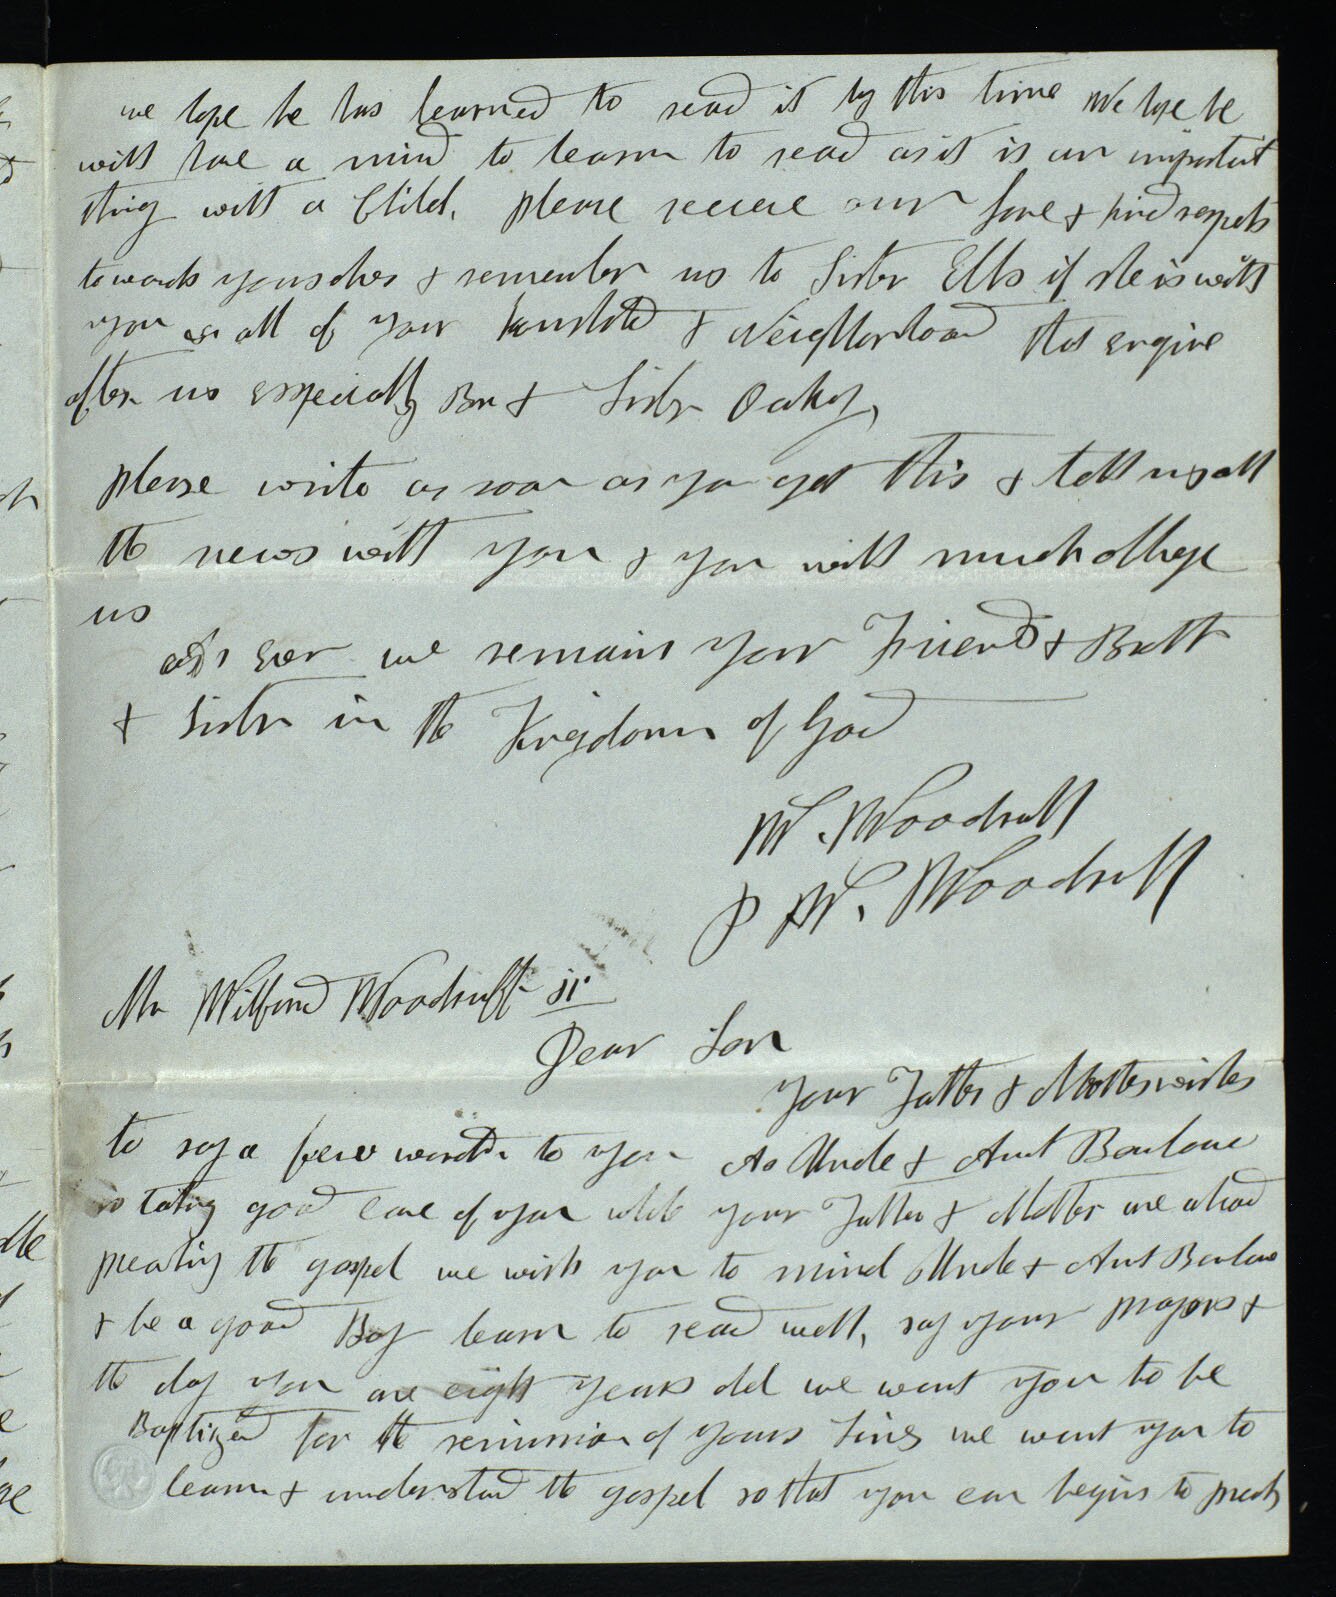 we hope he has learned to read it by this time We hope he
will have a mind to learn to read as it is an important
thing with a Child. please receive our love & kind respects
towards yourselves & remember us to Sister Ells if she is with
you as all of your household & Neighborhood that enqire
after us especially Br & Sister Oakey,
please write as soon as you get this & tell us all
the news with you & you will much oblige
us
as ever we remain your Friends & Broth
& Sister in the Kingdom of God
W. Woodruff
P W. Woodruff
Mr Wilford Woodruff jr
Dear Son
Your Father & Mother wishes
to say a few words to you As Uncle & Aunt Benbow
is taking good care of you while your Father & Mother are abroad
preaching the gospel we wish you to mind Uncle & Aunt Benbow
& be a good Boy learn to read well, say your prayers &
the day you are eight years old we want you to be
Baptized for the remission of yours Sins we want you to
learn & understand the gospel so that you can begin to preach